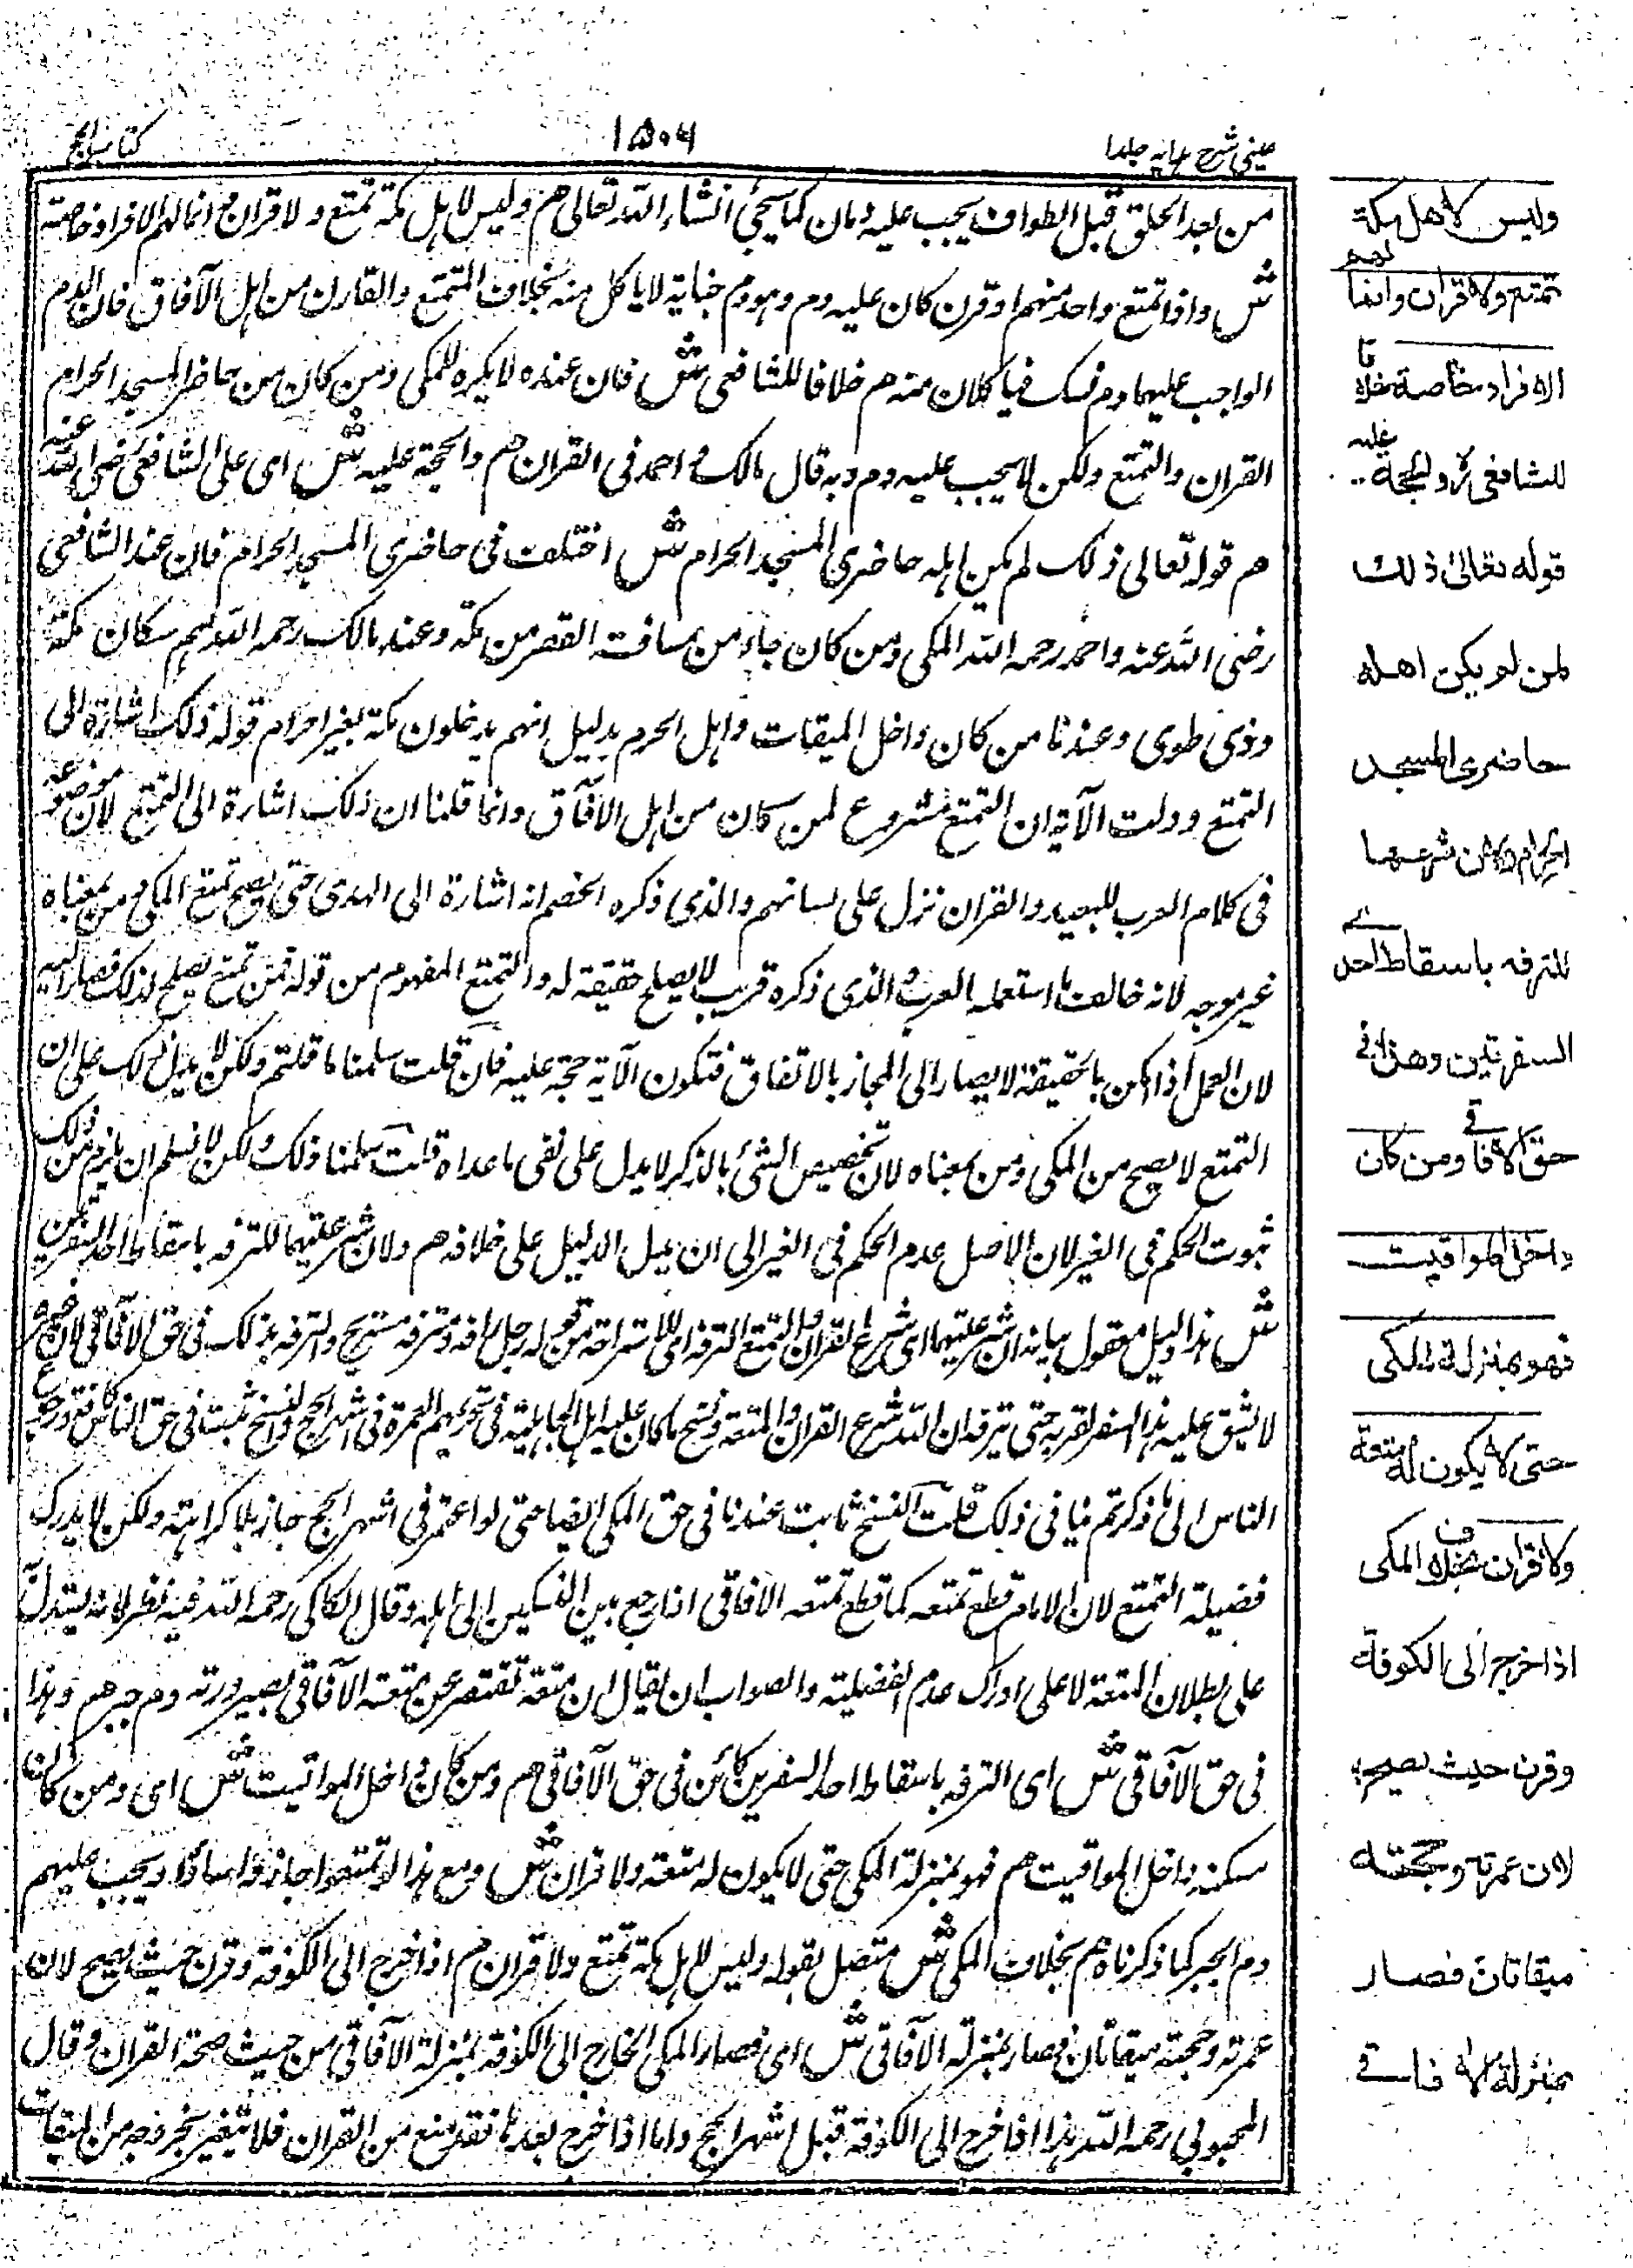 عینی شرح ہدایہ جلد ا
۱۵۰۶
کتاب الحج
من بعد الحلق قبل الطواف یجب علیه دمان کما سیجئ انشاء الله تعالی هم ولیس لاہل مکة تمتع ولا قران م انما لهم الافراد خاصة
ش واذا تمتع واحد منهم او قرن کان علیه دم وہو دم جنایة لا یاکل منه بخلاف المتمتع والقارن من اہل الآفاق فان الدم
الواجب علیهما دم نسک فیاکلان منه هم خلافا للشافعی ش فان عنده لا یکره للمکی ومن کان من حاضر المسجد الحرام
القران والتمتع ولکن لا یجب علیه دم وبه قال مالک و احمد فی القران هم والحجة علیه ش ای علی الشافعی رضی الله عنه
هم قوله تعالی ذلک لم یکن اہله حاضری المسجد الحرام ش اختلف فی حاضری المسجد الحرام فان عند الشافعی
رضی الله عنه واحمد رحمه الله المکی ومن کان جاء من مسافت القصر من مکة وعند مالک رحمه الله ہم سکان مکة
وذی طوی وعندنا من کان داخل المیقات واہل الحرم بدلیل انہم یدخلون مکة بغیر احرام قوله ذلک اشارة الی
التمتع ودلت الآیة ان التمتع مشروع لمن کان من اہل الآفاق وانما قلنا ان ذلک اشارة الی التمتع لان موضوعه
فی کلام العرب للبعید والقران نزل علی لسانهم والذی ذکره الخصم انه اشارة الی الہدی حتی یصح تمتع المکی ومن بمعناه
غیر موجه لانه خالف ما استعمله العرب والذی ذکره قریب لا یصلح حقیقة له والتمتع المفہوم من قوله فمن تمتع یصلح لذلک فصار الیه
لان العمل اذا امکن بالحقیقة لا یصار الی المجاز بالاتفاق فتکون الآیة حجة علیه فان قلت سلمنا ما قلتم ولکن لا یدل ذلک علی ان
التمتع لا یصح من المکی ومن بمعناه لان تخصیص الشئ بالذکر لا یدل علی نفی ما عداه قلت سلمنا ذلک ولکن لا نسلم ان یلزم من ذلک
ثبوت الحکم فی الغیر لان الاصل عدم الحکم فی الغیر الی ان یدل الدلیل علی خلافه هم ولان شرعیتهما للترفه باسقاط احد السفرتین
ش ہذا دلیل معقول بیانه ان شرعیتهما ای شرع القران والتمتع للترفه ای للاستراحة من قولهم رجل رافه ومترفه مستریح والترفه بذلک فی حق الآفاقی لان
لا یشق علیه ہذا السفر لقربه حتی یترفه ان الله شرع القران والمتعة ونسخ ما کان علیه اہل الجاہلیة فی تحریمهم العمرة فی اشہر الحج والنسخ ثبت فی حق الناس کافة
الناس الی ما ذکرتم ینافی ذلک قلت النسخ ثابت عندنا فی حق المکی ایضا حتی لو اعتمر فی اشہر الحج جاز بلا کراہة ولکن لا یدرک
فضیلة التمتع لان الالمام قطع تمتعه کما قطع تمتعه الآفاقی اذا رجع بین النسکین الی اہله وقال الکاکی رحمه الله فیه نظر لانه یستدل
علی بطلان المتعة لا علی ادراک عدم الفضیلة والصواب ان یقال ان متعة تقتصر عن متعة الآفاقی بصیرورته دم جبر هم وہذا
فی حق الآفاقی ش ای الترفه باسقاط احد السفرین کائن فی حق الآفاقی هم ومن کان داخل المواقیت ش ای ومن کان
سکنه داخل المواقیت هم فہو بمنزلة المکی حتی لا یکون له متعة ولا قران ش ومع ہذا لو تمتعوا جاز واساؤا ویجب علیہم
دم الجبر کما ذکرناه هم بخلاف المکی ش متصل بقوله ولیس لاہل مکة تمتع ولا قران م اذا خرج الی الکوفة وقرن حیث یصح لان
عمرته وحجته میقاتان فصار بمنزلة الآفاقی ش ای فصار المکی الخارج الی الکوفة بمنزلة الآفاقی من حیث صحة القران وقال
المحبوبی رحمه الله ہذا اذا خرج الی الکوفة قبل اشہر الحج واما اذا خرج بعدها فقد منع من القران فلا یتغیر بخروجه من المیقات
ولیس لاهل مکة
تمتع ولا قران وانما لهم
الافراد خاصة خلافا
للشافعی رح والحجة علیه
قوله تعالی ذلک
لمن لم یکن اهله
حاضری المسجد
الحرام ولان شرعیتهما
للترفه باسقاط احدے
السفرتین وهذا فی
حق الافاقی ومن کان
داخل المواقیت
فهو بمنزلة المکی
حتی لا یکون له متعة
ولا قران بخلاف المکی
اذا خرج الی الکوفة
وقرن حیث یصح
لان عمرته وحجته
میقاتان فصار
بمنزلة الافاقی